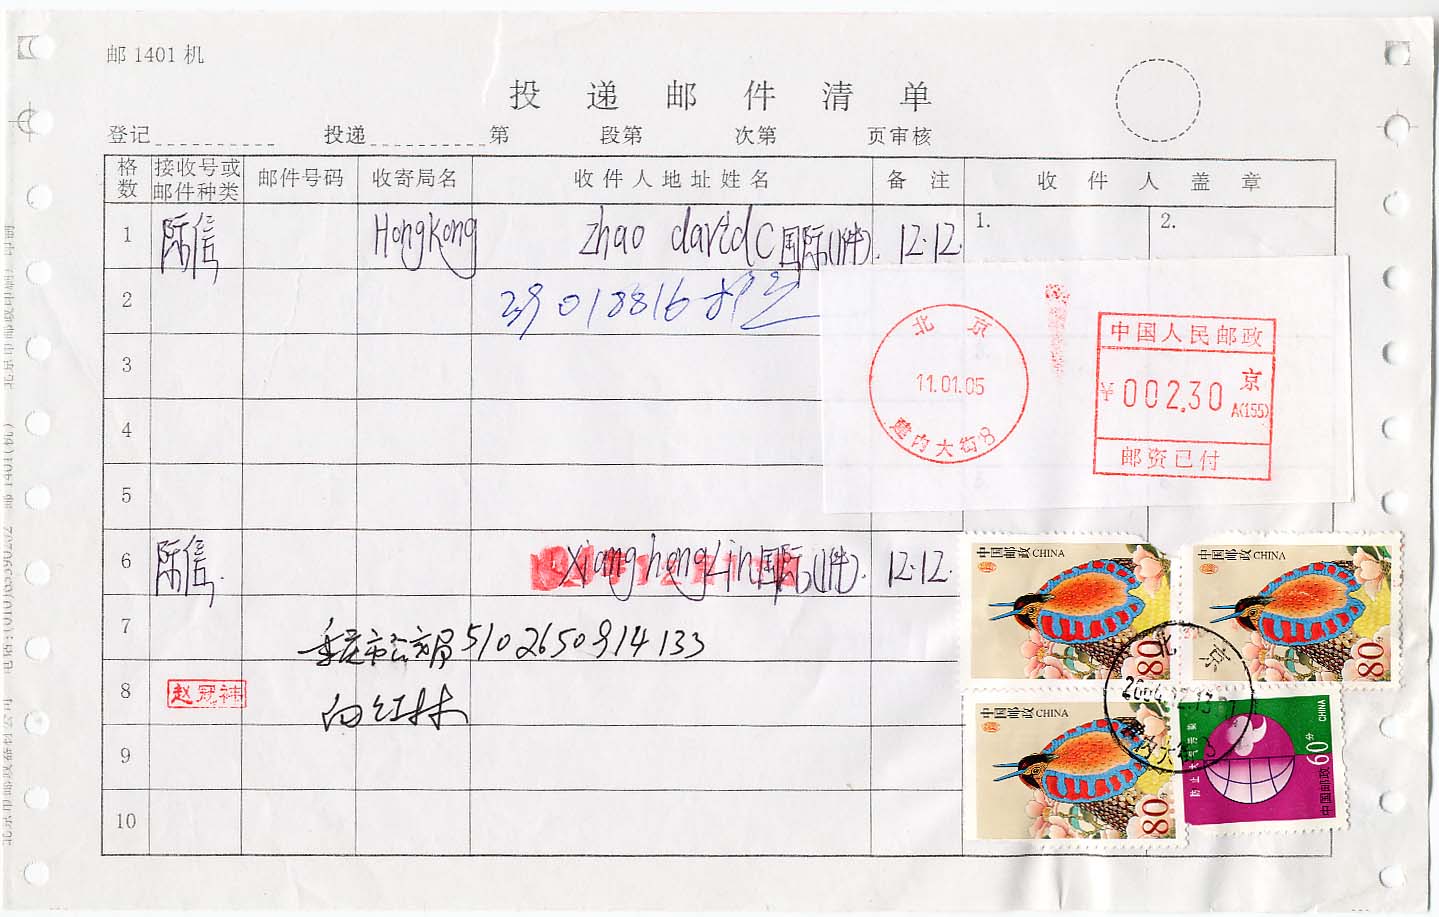 邮1401机
投递邮件清单
登记 投递 第 段第 次第 页审核
格数 接收号或邮件种类 邮件号码 收寄局名 收件人地址姓名 备注 收件人盖章
1 际信 HongKong zhao david C国际(1件). 12.12. 1. 2.
2 29018816
北京
11.01.05
建内大街8
中国人民邮政
¥002.30 京
A(155)
邮资已付
3
4
5
6 际信. Xianghonglin国际(1件). 12.12.
7 重庆市公安局5102650914133
8 赵冠
向红林
9
10
中国邮政 CHINA
80分
中国邮政 CHINA
80分
中国邮政 CHINA
80分
防止大气污染
中国邮政 60分 CHINA
北京
内大街